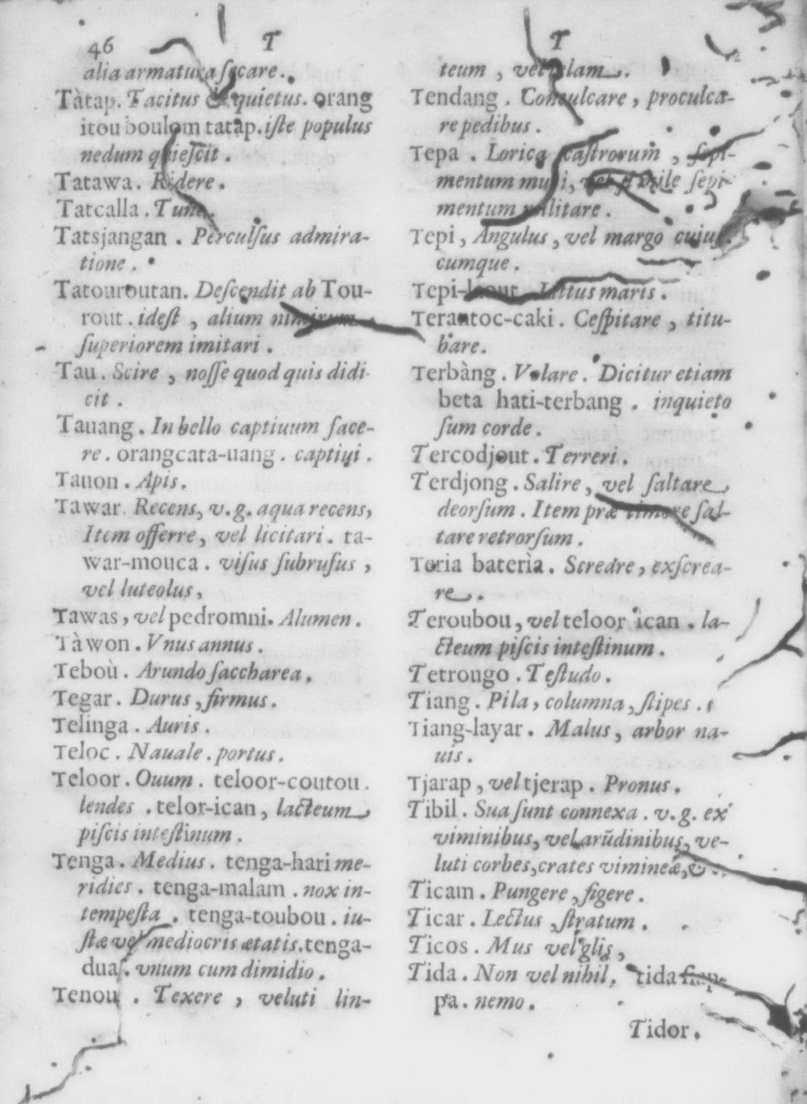 46
T
alia armatura ſecare.
Tàtap. Tacitus & quietus. orang
itou boulom tatap. iſte populus
nedum quieſcit.
Tatawa. Ridere.
Tatcalla.
Tatsjangan. Perculſus admira-
tione.
Tatouroutan. Deſcendit ab Tou-
rout. ideſt, alium nimirum
ſuperiorem imitari.
Tau. Scire, noſſe quod quis didi-
cit.
Tauang. In bello captiuum face-
re. orangcata-uang. captiui.
Tauon. Apis.
Tawar. Recens, v.g. aqua recens,
Item offerre, vel licitari. ta-
war-mouca. viſus ſubrufus,
vel luteolus,
Tawas, vel pedromni. Alumen.
Tàwon. Vnus annus.
Teboù. Arundo ſaccharea.
Tegar. Durus, firmus.
Telinga. Auris.
Teloc. Nauale. portus.
Teloor. Ouum. teloor-coutou.
lendes. telor-ican, lacteum
piſcis inteſtinum.
Tenga. Medius. tenga-hari me-
ridies. tenga-malam. nox in-
tempeſta. tenga-toubou. iu-
ſtæ vel mediocris ætatis. tenga-
dua. vnum cum dimidio.
Tenou. Texere, veluti lin-
T
teum, vel telam.
Tendang. Conculcare, proculca-
re pedibus.
Tepa. Lorica caſtrorum, ſepi-
mentum muri, ſepi-
mentum militare.
Tepi, Angulus, vel margo cuiuſ-
cumque.
Tepi-laout. Littus maris.
Terantoc-caki. Ceſpitare, titu-
bare.
Terbàng. Volare. Dicitur etiam
beta hati-terbang. inquieto
ſum corde.
Tercodjout. Terreri.
Terdjong. Salire, vel ſaltare
deorſum. Item præ timore ſal-
tare retrorſum.
Toria baterìa. Screare, exſcrea-
re.
Teroubou, vel teloor ican. la-
cteum piſcis inteſtinum.
Tetrongo. Teſtudo.
Tiang. Pila, columna, ſtipes.
Tiang-layar. Malus, arbor na-
uis.
Tjarap, vel tjerap. Pronus.
Tibil. Sua ſunt connexa. v.g. ex
viminibus, vel arũdinibus, ve-
luti corbes, crates vimineæ, &.
Ticam. Pungere, figere.
Ticar. Lectus, ſtratum.
Ticos. Mus vel glis,
Tida. Non vel nihil. tida
pa. nemo.
Tidor.